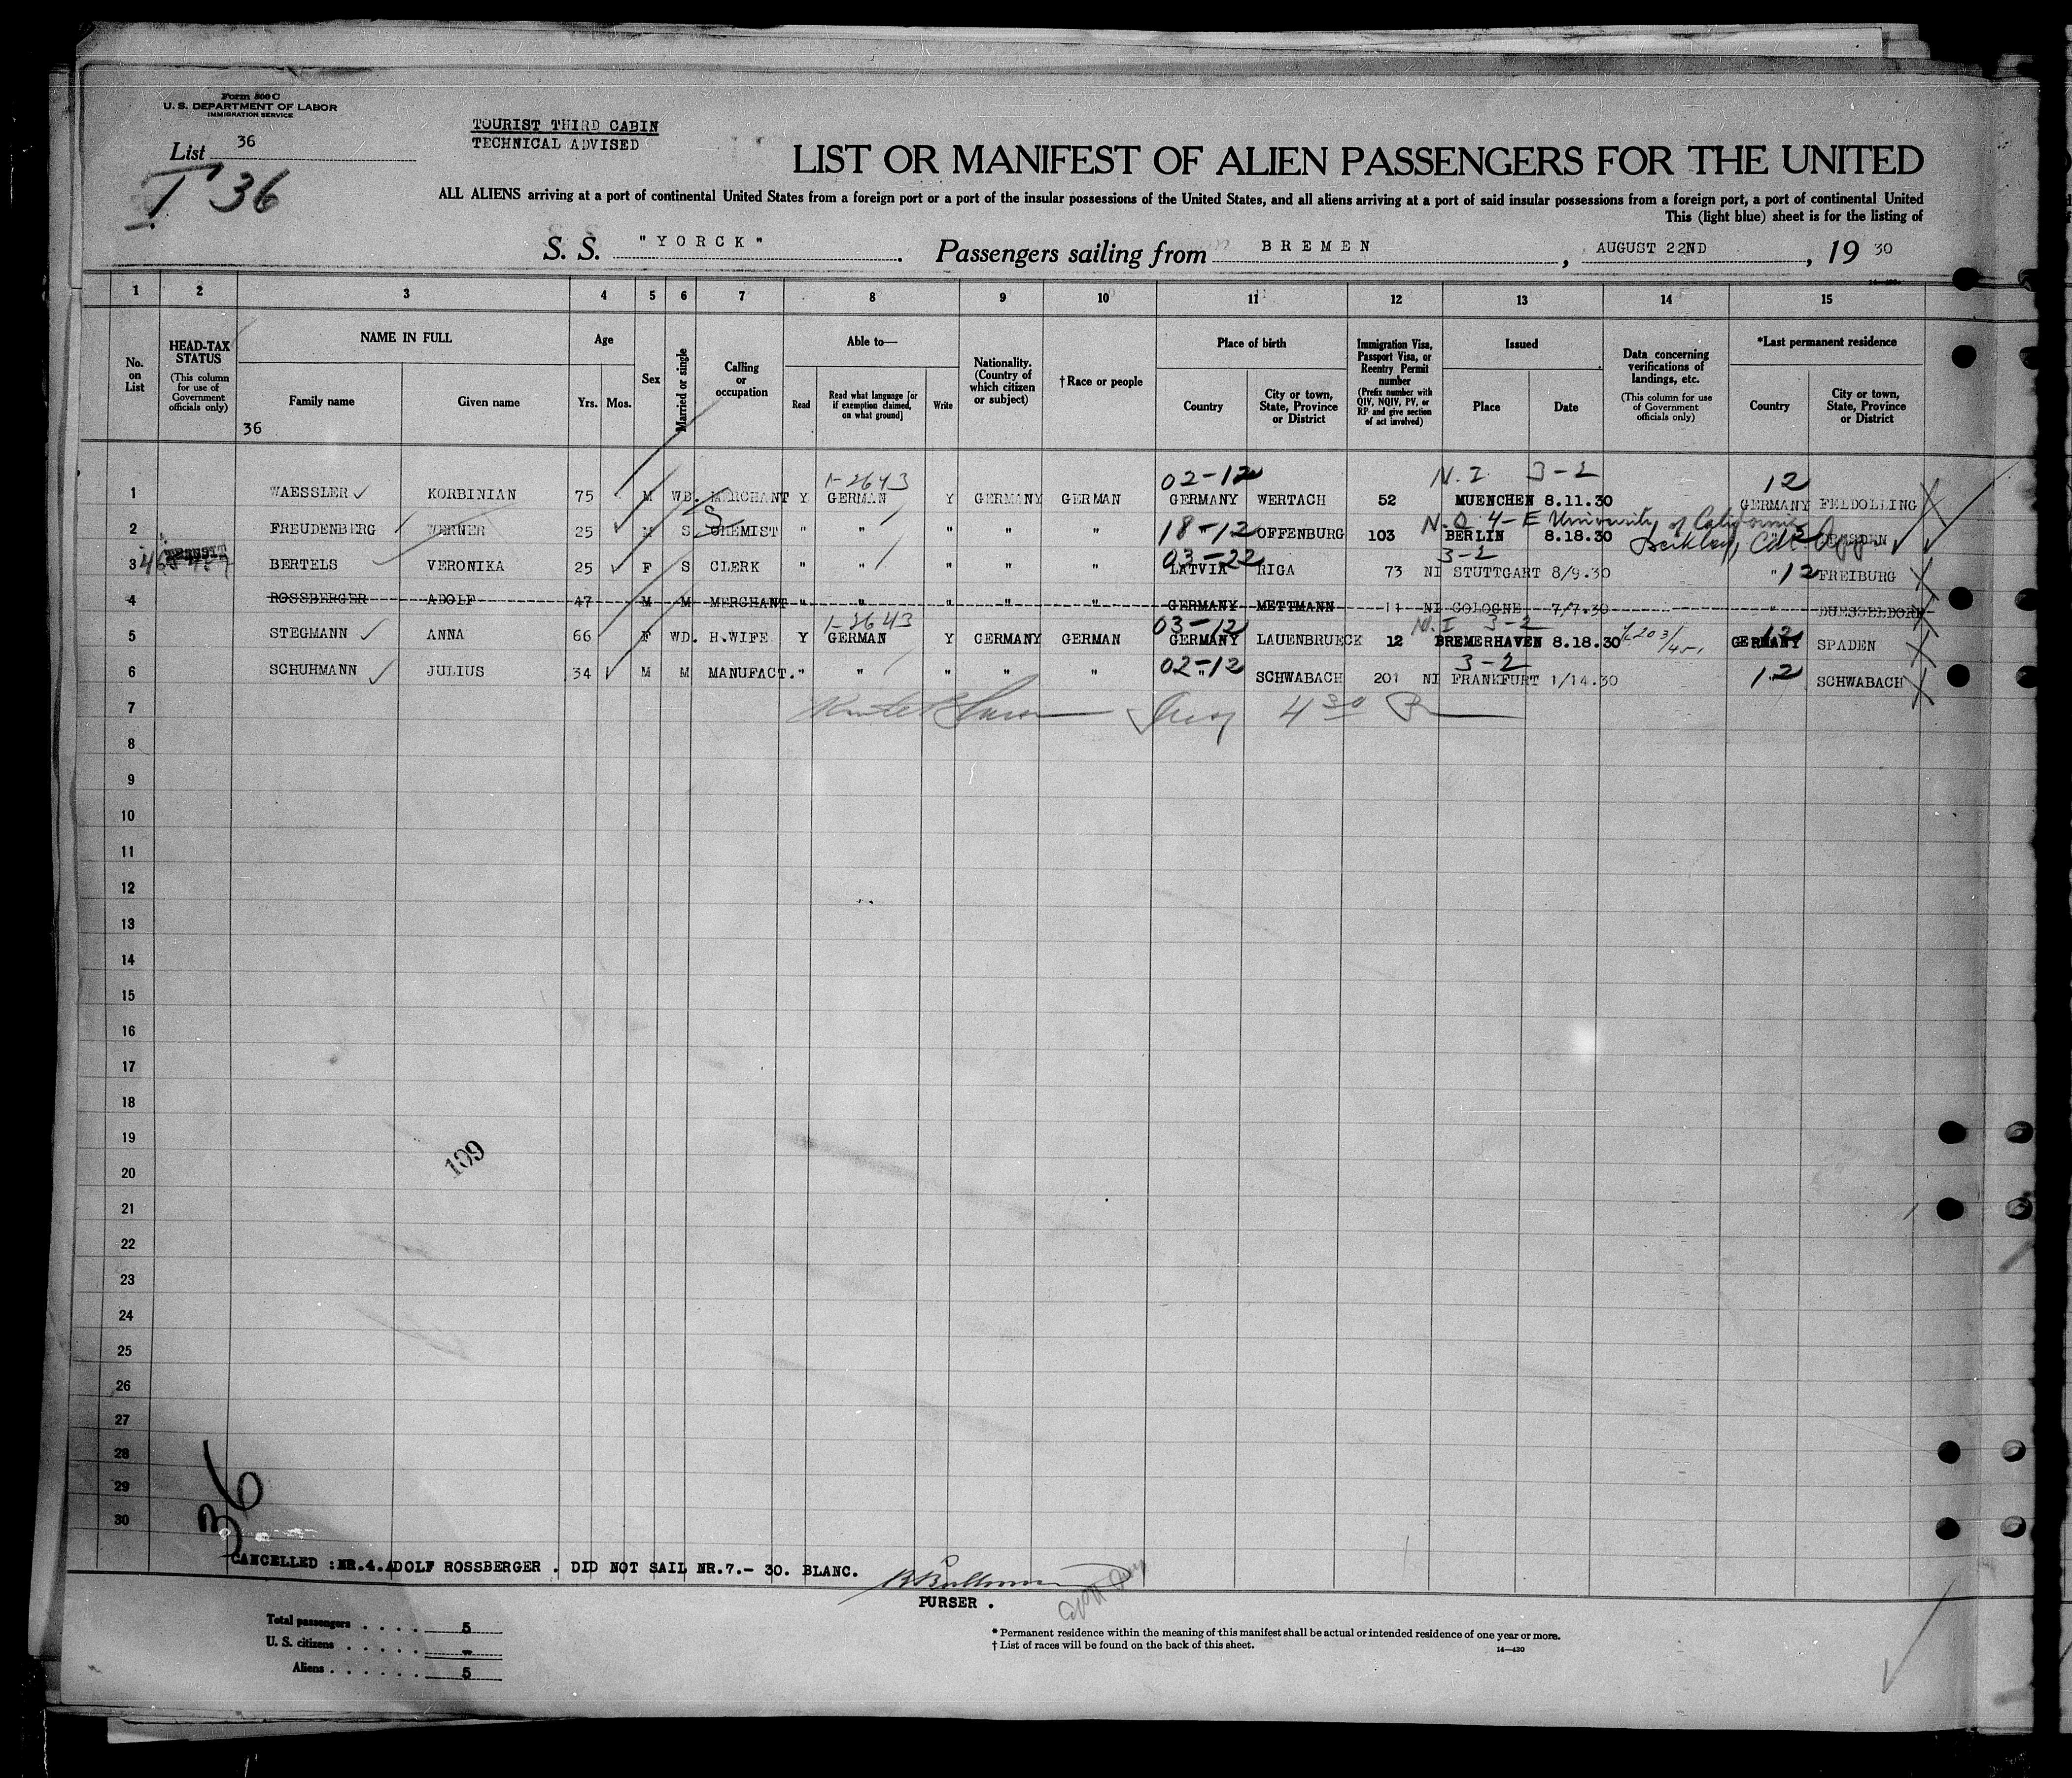 Form 500 C
U. S. DEPARTMENT OF LABOR
IMMIGRATION SERVICE
List 36
I 36
TOURIST THIRD CABIN
TECHNICAL ADVISED
LIST OR MANIFEST OF ALIEN PASSENGERS FOR THE UNITED
ALL ALIENS arriving at a port of continental United States from a foreign port or a port of the insular possessions of the United States, and all aliens arriving at a port of said insular possessions from a foreign port, a port of continental United
This (light blue) sheet is for the listing of
S. S. "YORCK". Passengers sailing from BREMEN, AUGUST 22ND, 19 30
1 2 3 4 5 6 7 8 9 10 11 12 13 14 15
No. on List
HEAD-TAX STATUS (This column for use of Government officials only)
NAME IN FULL
Family name
Given name
36
Age
Yrs. Mos.
Sex
Married or single
Calling or occupation
Able to—
Read
Read what language [or if exemption claimed, on what ground]
Write
Nationality. (Country of which citizen or subject)
† Race or people
Place of birth
Country
City or town, State, Province or District
Immigration Visa, Passport Visa, or Reentry Permit number (Prefix number with QIV, NQIV, PV, or RP and give section of act involved)
Issued
Place
Date
Data concerning verifications of landings, etc. (This column for use of Government officials only)
*Last permanent residence
Country
City or town, State, Province or District
1-2643 02-12 N.I 3-2 12
1 WAESSLER KORBINIAN 75 M WD. MERCHANT Y GERMAN Y GERMANY GERMAN GERMANY WERTACH 52 MUENCHEN 8.11.30 GERMANY FELDOLLING
S 18-12 N.Q 4-E University of California
2 FREUDENBERG WERNER 25 M S CHEMIST " " " " " OFFENBURG 103 BERLIN 8.18.30 Berkley, Cal. 12
TRANSIT 03-22 3-2
3 BERTELS VERONIKA 25 F S CLERK " " " " " LATVIA RIGA 73 NI STUTTGART 8/9.30 " 12 FREIBURG
4 ROSSBERGER ADOLF 47 M M MERCHANT " " " " " GERMANY METTMANN 11 NI COLOGNE 7/7.30 " DUESSELDORF
1-2643 03-12 N.I 3-2 12
5 STEGMANN ANNA 66 F WD. H.WIFE Y GERMAN Y GERMANY GERMAN GERMANY LAUENBRUECK 12 BREMERHAVEN 8.18.30 GERMANY SPADEN
02-12 3-2
6 SCHUHMANN JULIUS 34 M M MANUFACT. " " " " " " SCHWABACH 201 NI FRANKFURT 1/14.30 12 SCHWABACH
7 4 30
8
9
10
11
12
13
14
15
16
17
18
19
109
20
21
22
23
24
25
26
27
28
29
30
36
CANCELLED :NR.4.ADOLF ROSSBERGER . DID NOT SAIL NR.7.- 30. BLANC.
PURSER .
Total passengers . . . . 5
U. S. citizens . . . . . -
Aliens . . . . . . 5
* Permanent residence within the meaning of this manifest shall be actual or intended residence of one year or more.
† List of races will be found on the back of this sheet.
14—430